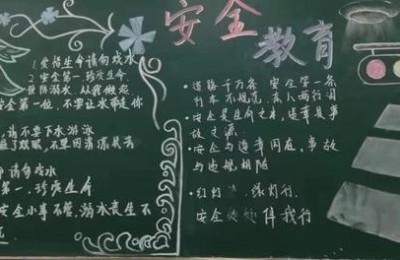 安全教育
1. 爱惜生命请勿戏水
2. 安全第一 珍爱生命
防溺水 从我做起
安全第一位,不要让水带走你
请不要下水游泳
不要因清凉丧失
请勿戏水
第一,珍爱生命
安全小事不管,溺水丧生不
•道路千万条 安全第一条
行车不规范 亲人两行泪
•安全是生命之本,违章是事
故之源
•安全与遵章同在,事故
与违规相随
•红灯 绿灯行
安全 伴我行